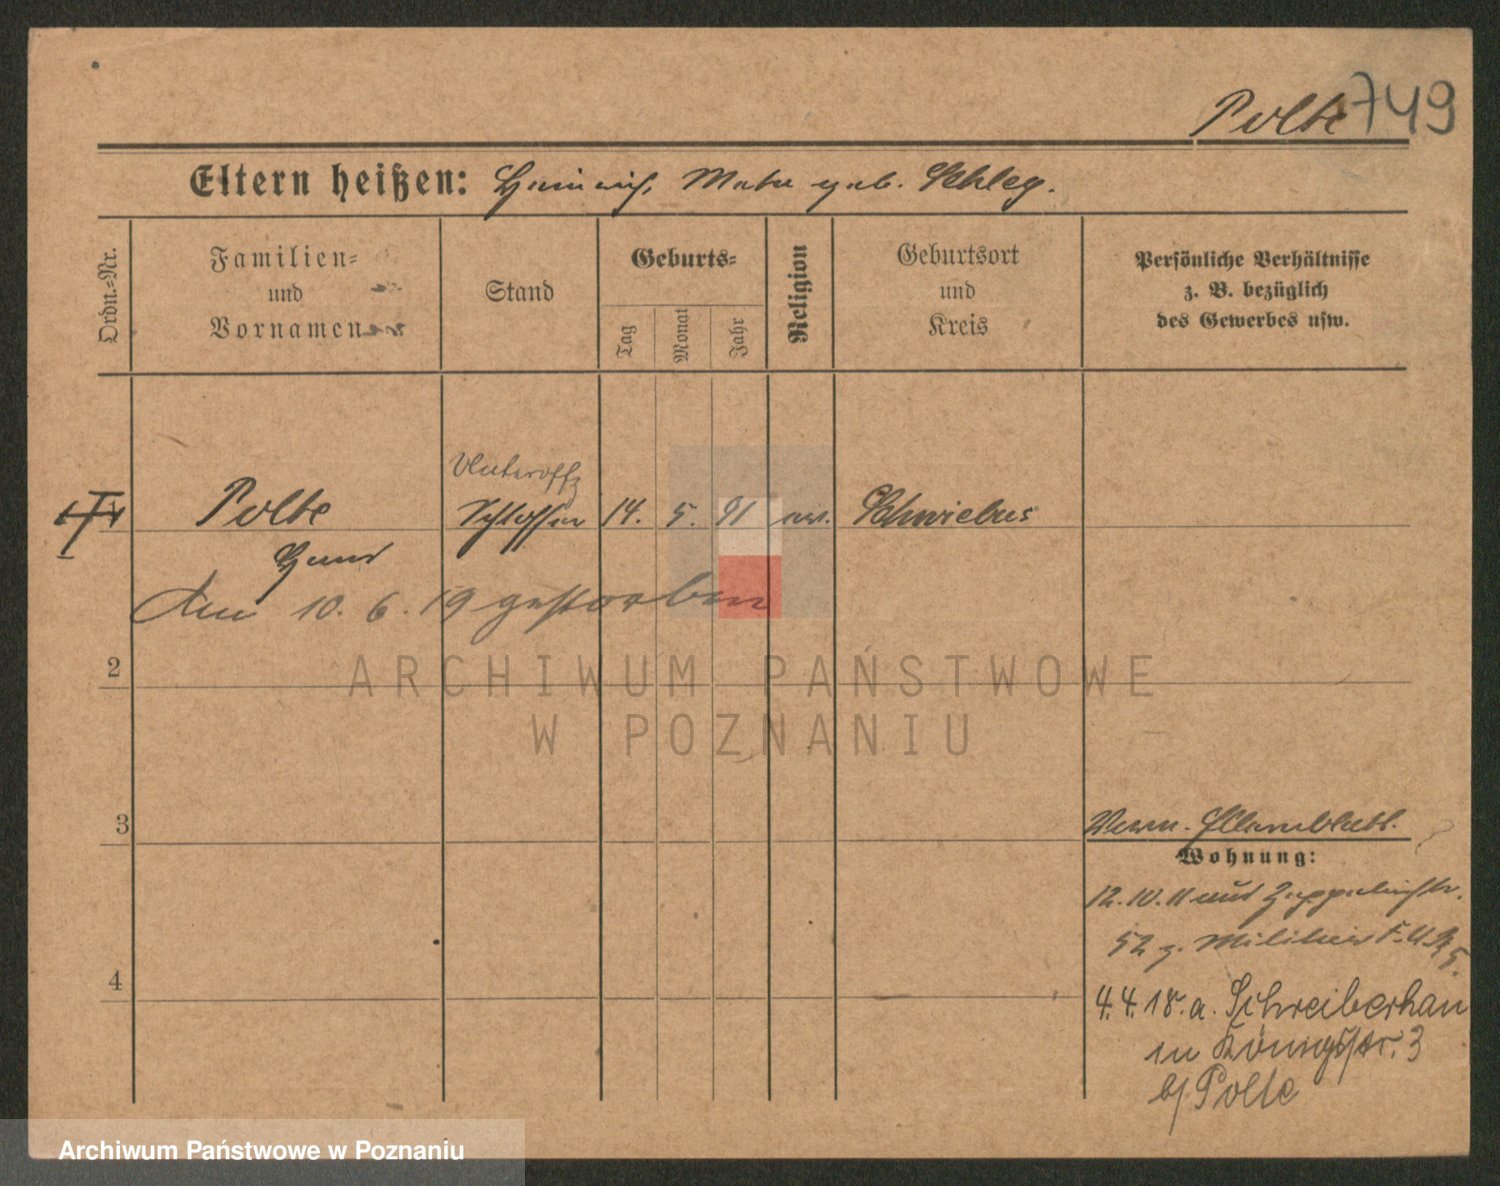 Polte 749
Eltern heißen: Heinrich, Marta geb. Schleg.
Ordn.-Nr.
Familien-
und
Vornamen
Stand
Geburts-
Tag
Monat
Jahr
Religion
Geburtsort
und
Kreis
Persönliche Verhältnisse
z. B. bezüglich
des Gewerbes usw.
Unteroffz
Polte Schlosser 14. 5. 91 ev. Schwiebus
den 10. 6. 19 gestorben
2
3
Wohnung:
12. 10. 11 aus Zeppelinstr.
52 z. Militär F.A.R. 5.
4
4.4.18. a. Schreiberhau
in Königstr. 3
b/ Polte
ARCHIWUM PAŃSTWOWE
W POZNANIU
Archiwum Państwowe w Poznaniu